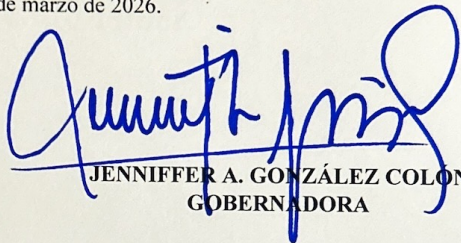 de marzo de 2026.
JENNIFFER A. GONZÁLEZ COLÓN
GOBERNADORA